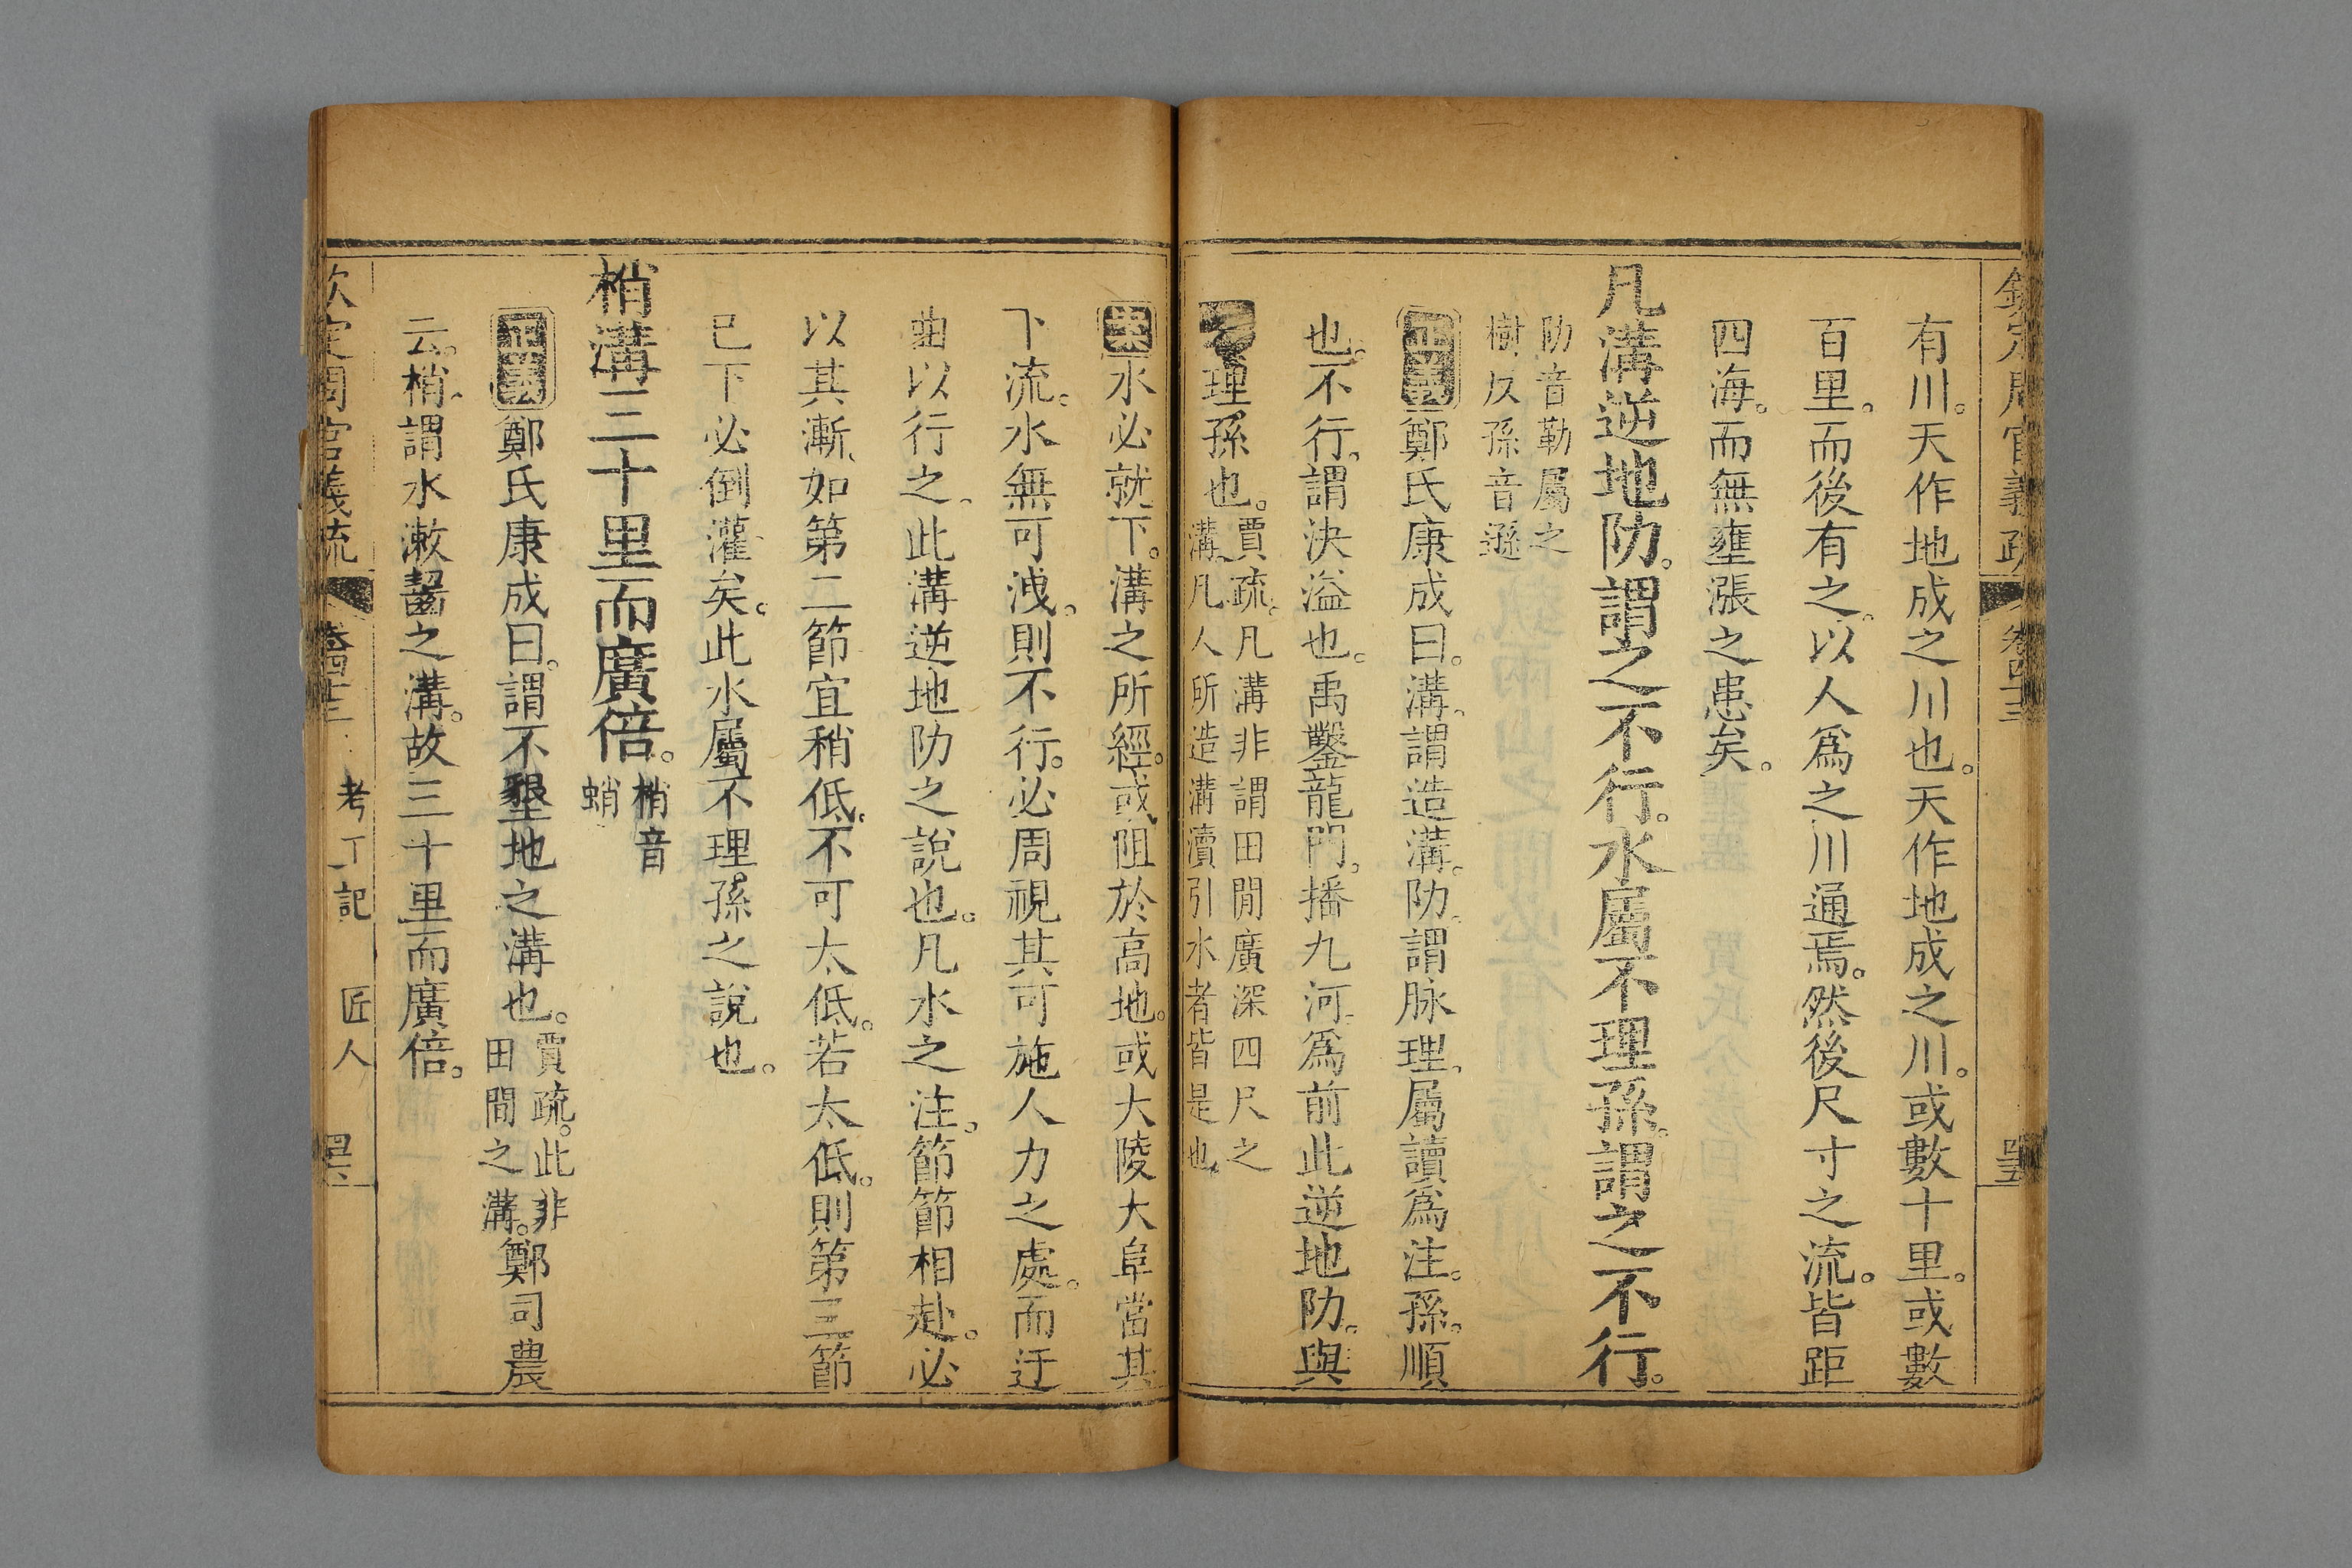 欽定周官義疏 卷四十三 罢
有川。天作地成之川也。天作地成之川。或數十里。或數
百里。而後有之。以人爲之川通焉。然後尺寸之流。皆距
四海。而無壅漲之患矣。
凡溝逆地阞。謂之不行。水屬不理孫。謂之不行。
阞音勒屬之
樹反孫音遜
正義鄭氏康成曰。溝。謂造溝。阞。謂脉理。屬讀爲注。孫。順
也。不行。謂決溢也。禹鑿龍門。播九河。爲前此逆地阞。與
不理孫也。賈疏。凡溝非謂田間廣深四尺之
溝。凡人所造溝瀆引水者皆是也。
案水必就下。溝之所經。或阻於高地。或大陵大阜當其
下流。水無可洩。則不行。必周視其可施人力之處。而迂
曲以行之。此溝逆地阞之說也。凡水之注。節節相赴。必
以其漸。如第二節宜稍低。不可太低。若太低。則第三節
已下必倒灌矣。此水屬不理孫之說也。
梢溝三十里而廣倍。梢音
蛸
正義鄭氏康成曰。謂不墾地之溝也。賈疏。此非
田間之溝。鄭司農
云。梢。謂水漱齧之溝。故三十里而廣倍。
欽定周官義疏 卷四十三 考工記 匠人